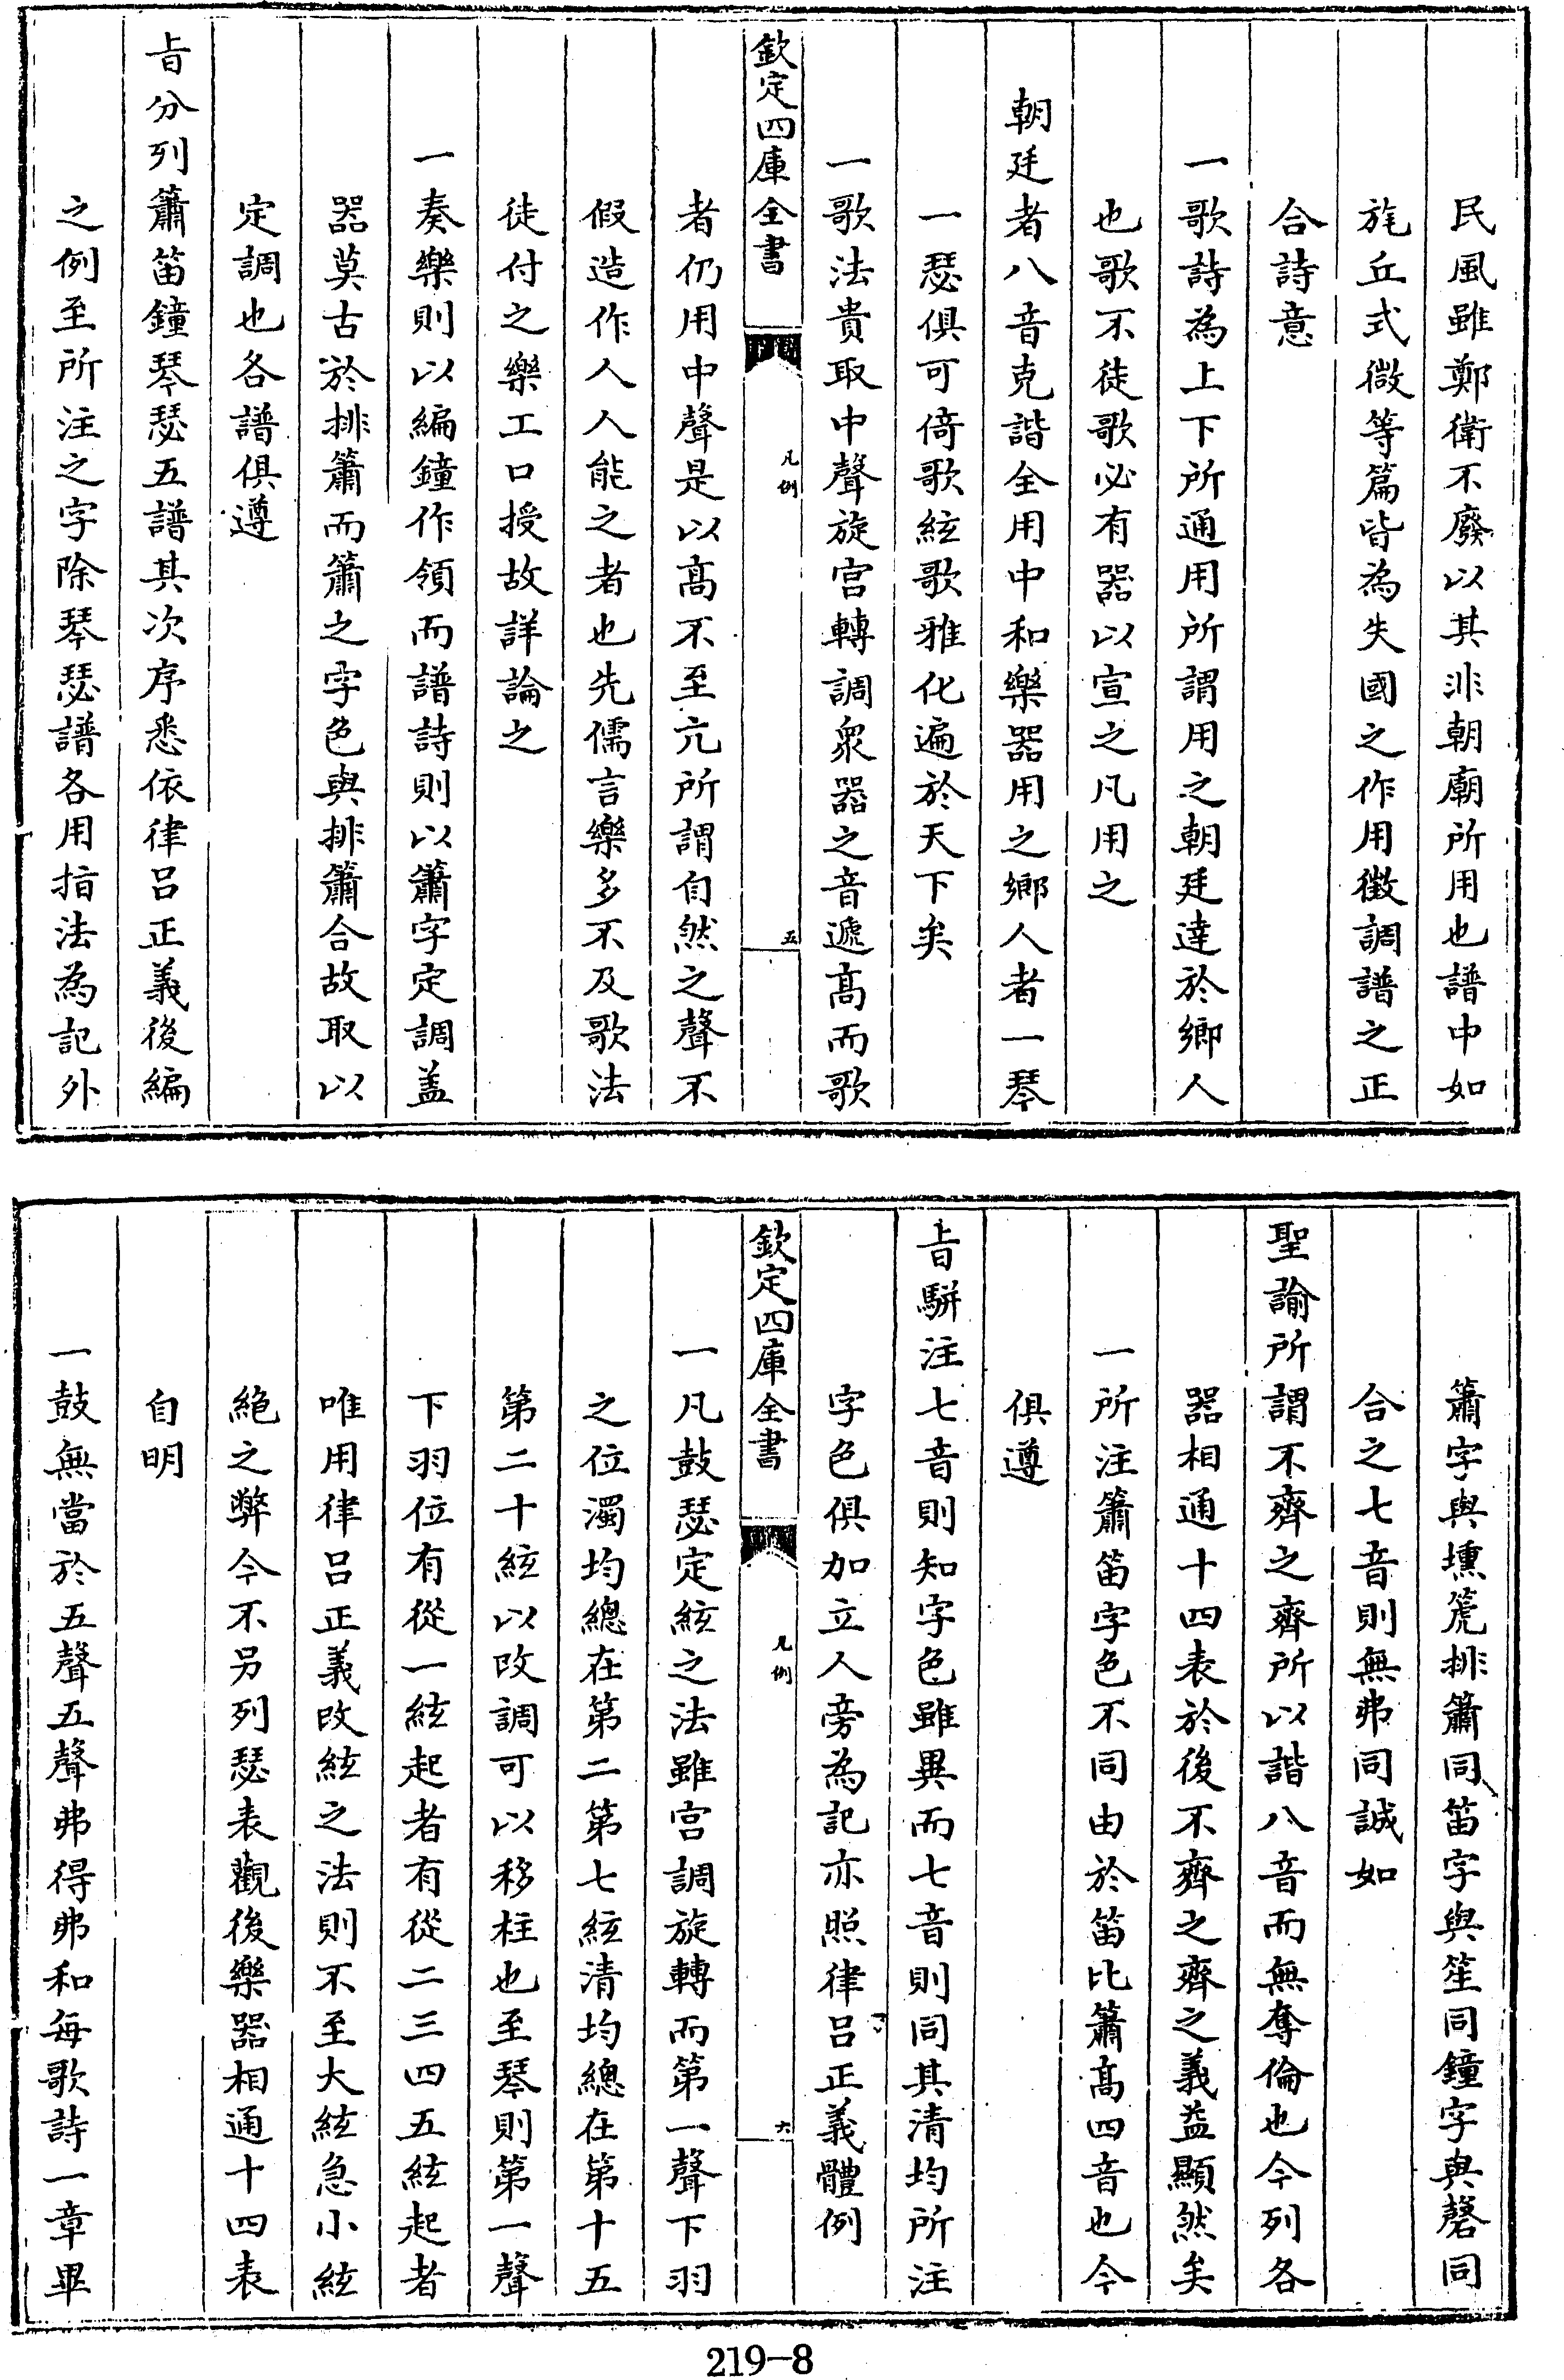 民風雖鄭衛不廢以其非朝廟所用也譜中如
旄丘式微等篇皆為失國之作用徵調譜之正
合詩意
一歌詩為上下所通用所謂用之朝廷達於鄉人
也歌不徒歌必有器以宣之凡用之
朝廷者八音克諧全用中和樂器用之鄉人者一琴
一瑟俱可倚歌絃歌雅化遍於天下矣
一歌法貴取中聲旋宫轉調衆器之音遞髙而歌
欽定四庫全書
凡例
五
者仍用中聲是以髙不至亢所謂自然之聲不
假造作人人能之者也先儒言樂多不及歌法
徒付之樂工口授故詳論之
一奏樂則以編鐘作領而譜詩則以簫字定調盖
器莫古於排簫而簫之字色與排簫合故取以
定調也各譜俱遵
㫖分列簫笛鐘琴瑟五譜其次序悉依律吕正義後編
之例至所注之字除琴瑟譜各用指法為記外
簫字與壎箎排簫同笛字與笙同鐘字與磬同
合之七音則無弗同誠如
聖諭所謂不齊之齊所以諧八音而無奪倫也今列各
器相通十四表於後不齊之齊之義益顯然矣
一所注簫笛字色不同由於笛比簫髙四音也今
俱遵
㫖駢注七音則知字色雖異而七音則同其清均所注
字色俱加立人旁為記亦照律吕正義體例
欽定四庫全書
凡例
六
一凡鼓瑟定絃之法雖宫調旋轉而第一聲下羽
之位濁均總在第二第七絃清均總在第十五
第二十絃以改調可以移柱也至琴則第一聲
下羽位有從一絃起者有從二三四五絃起者
唯用律吕正義改絃之法則不至大絃急小絃
絶之弊今不另列瑟表觀後樂器相通十四表
自明
一鼓無當於五聲五聲弗得弗和每歌詩一章畢
219-8